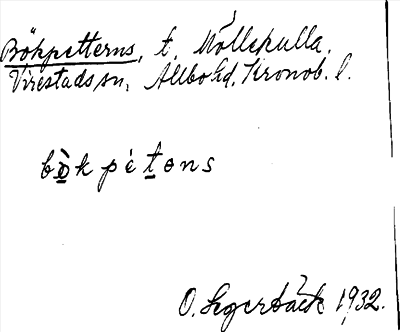 Bökpetterns, t. Möllekulla.
Virestads sn, Allbo hd. Kronob. l.
bö̀kpètəns
O. Segerbäck 1932.